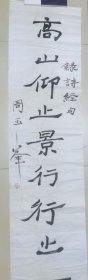 高山仰止景行行止
錄詩經句